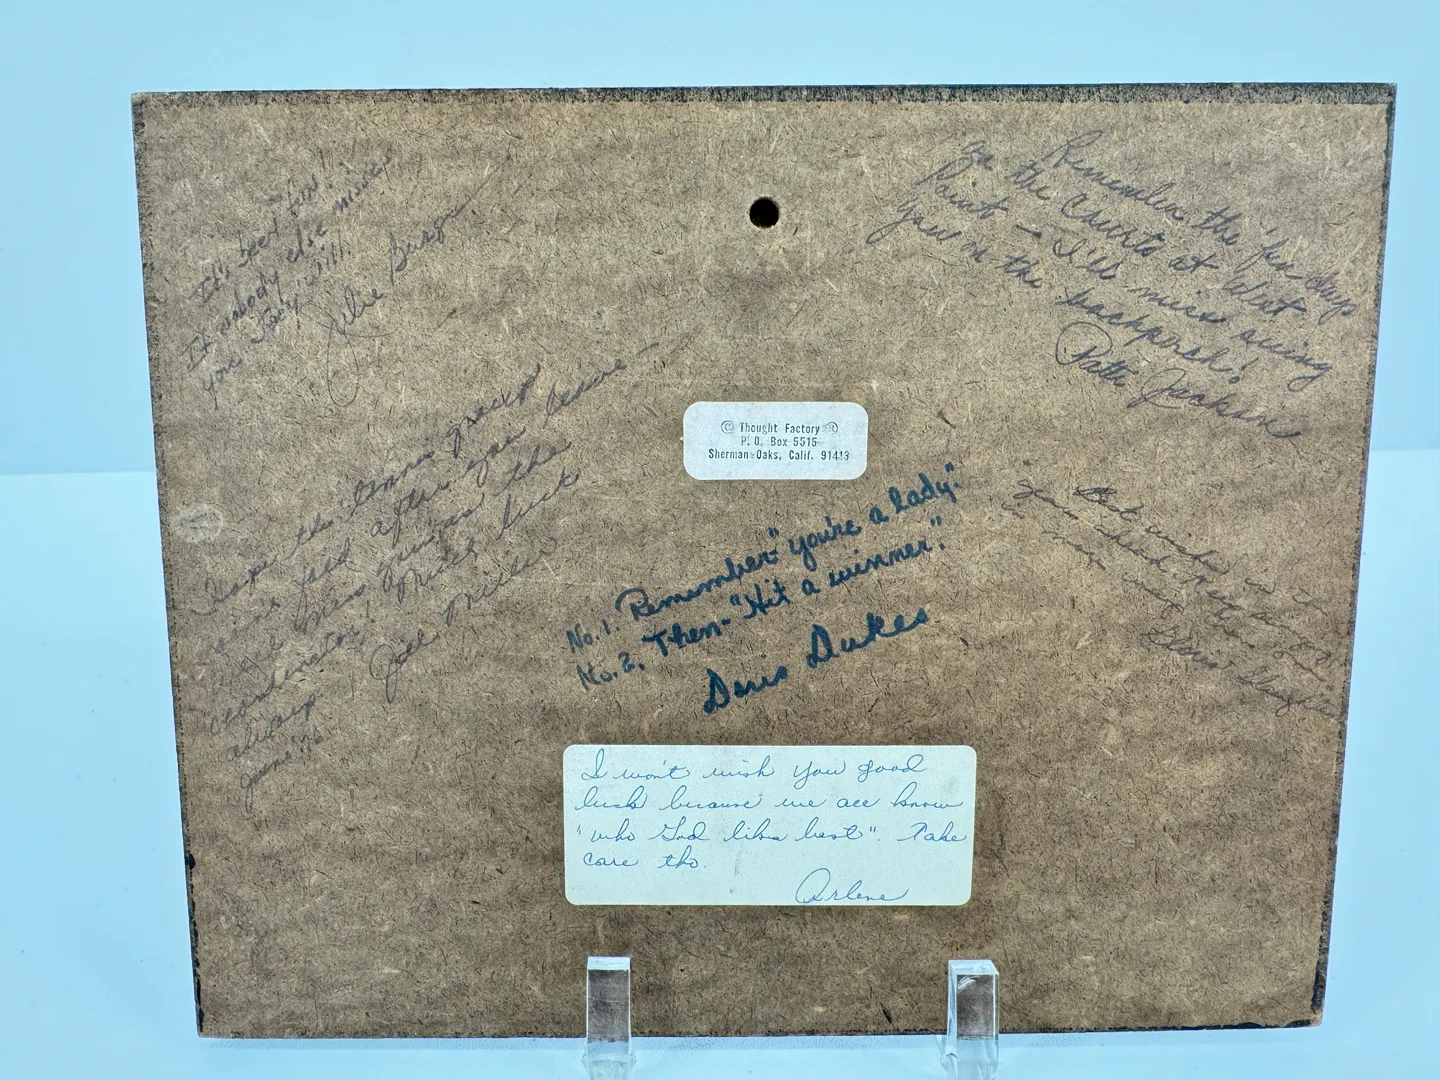 It's been fun!
If nobody else misses
you Judy, I'll.
Julie Burg
Remember the fun days
on the courts at West
Point - I'll miss seeing
you on the backhand!
Patti Jackson
© Thought Factory ®
P. O. Box 5515
Sherman Oaks, Calif. 91413
Hope the tennis group
after you leave -
miss you as the
coordinator! Much luck
always!
June '76
No. 1. Remember "you're a lady".
No. 2. Then - "Hit a winner".
Doris Dukes
Best wishes in
your
Doris
I won't wish you good
luck because we all know
"who God likes best". Take
care tho.
Arlene